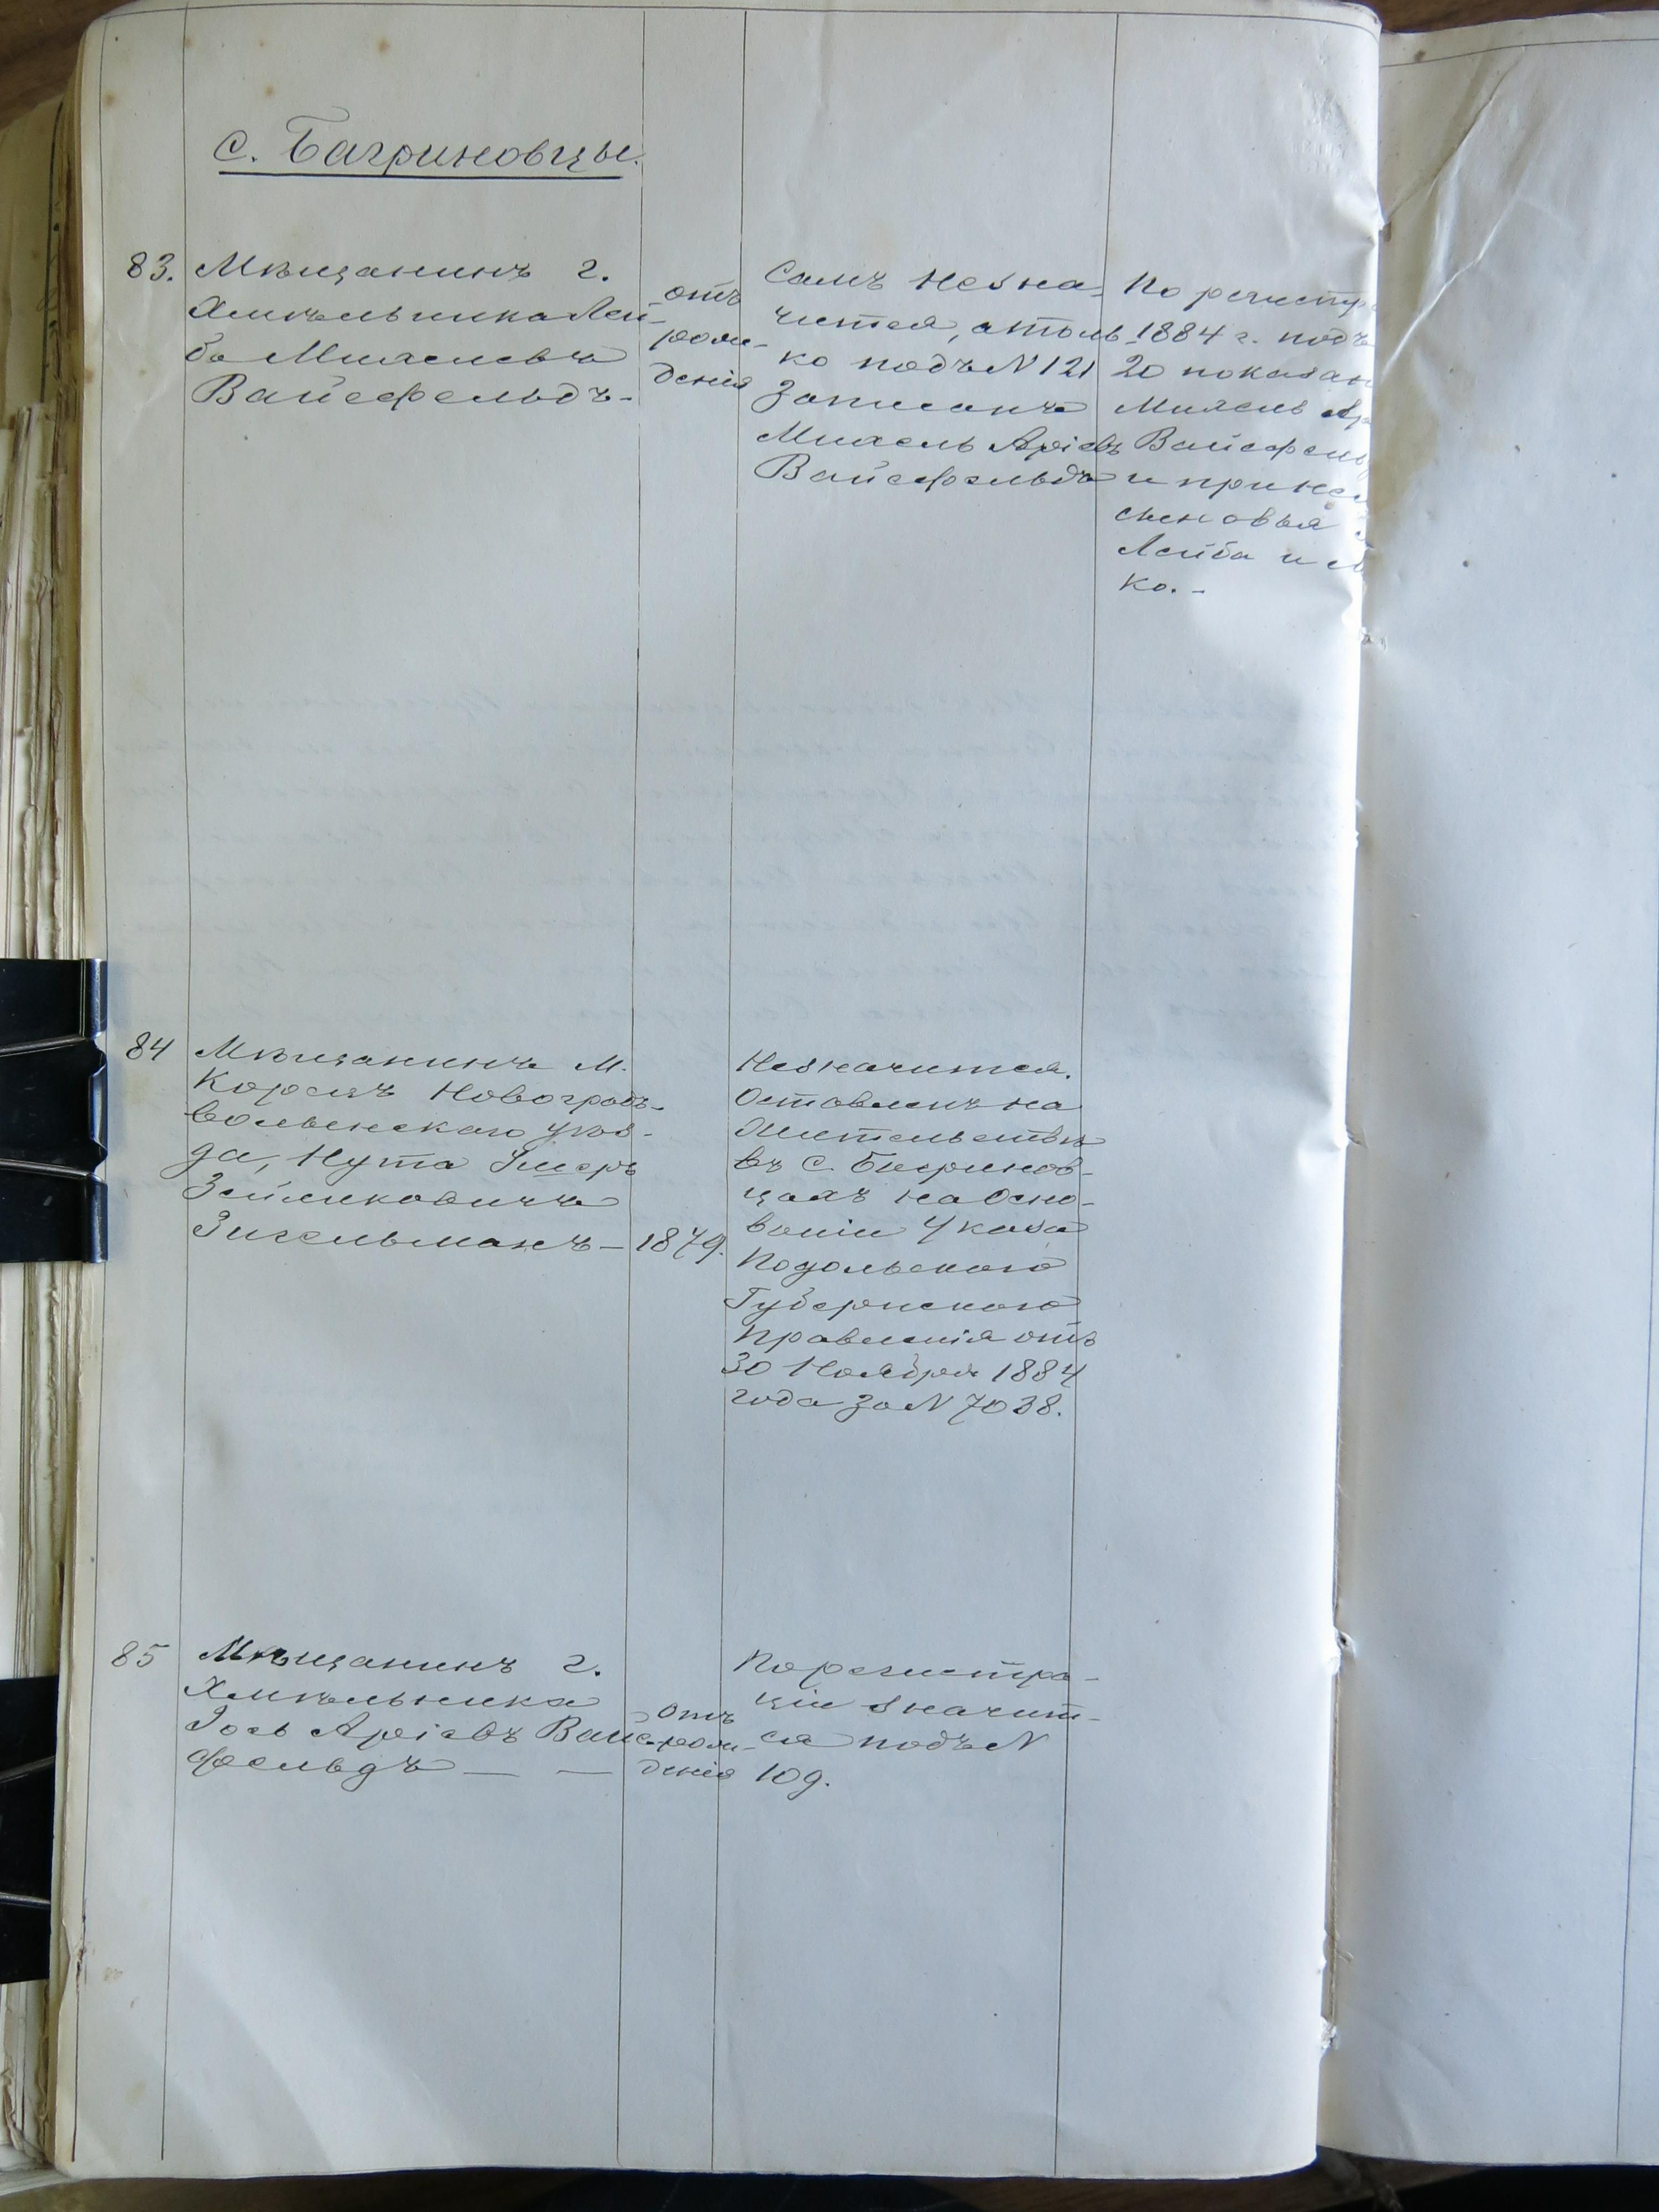 с. Багриновцы.
83. Мѣщанинъ г.
Хмѣльника Лей-
ба Михелевъ
Вайсфельдъ -
отъ
рож-
денія
Самъ незна-
чится, а толь-
ко подъ N 121
записанъ
Михель Аріевъ
Вайсфельдъ
По регистр
1884 г. подъ
20 показан
Михель Ар
Вайсфель
и при не
сыновья
Лейба и
ко. -
84 Мѣщанинъ м.
Корецъ Новоградъ-
волынскаго уѣз-
да, Нута Умеръ
Зейликовичъ
Зигельманъ - 1879.
Незначится.
Оставленъ на
жительствѣ
въ с. Багринов-
цахъ на осно-
ваніи Указа
Подольскаго
Губернскаго
Правленія отъ
30 Ноября 1884
года за N 7038.
85 Мѣщанинъ г.
Хмѣльника
Іось Аріевъ Вайс-
фельдъ — —
отъ
рож-
денія
По регистра-
ціи значит-
ся подъ N
109.